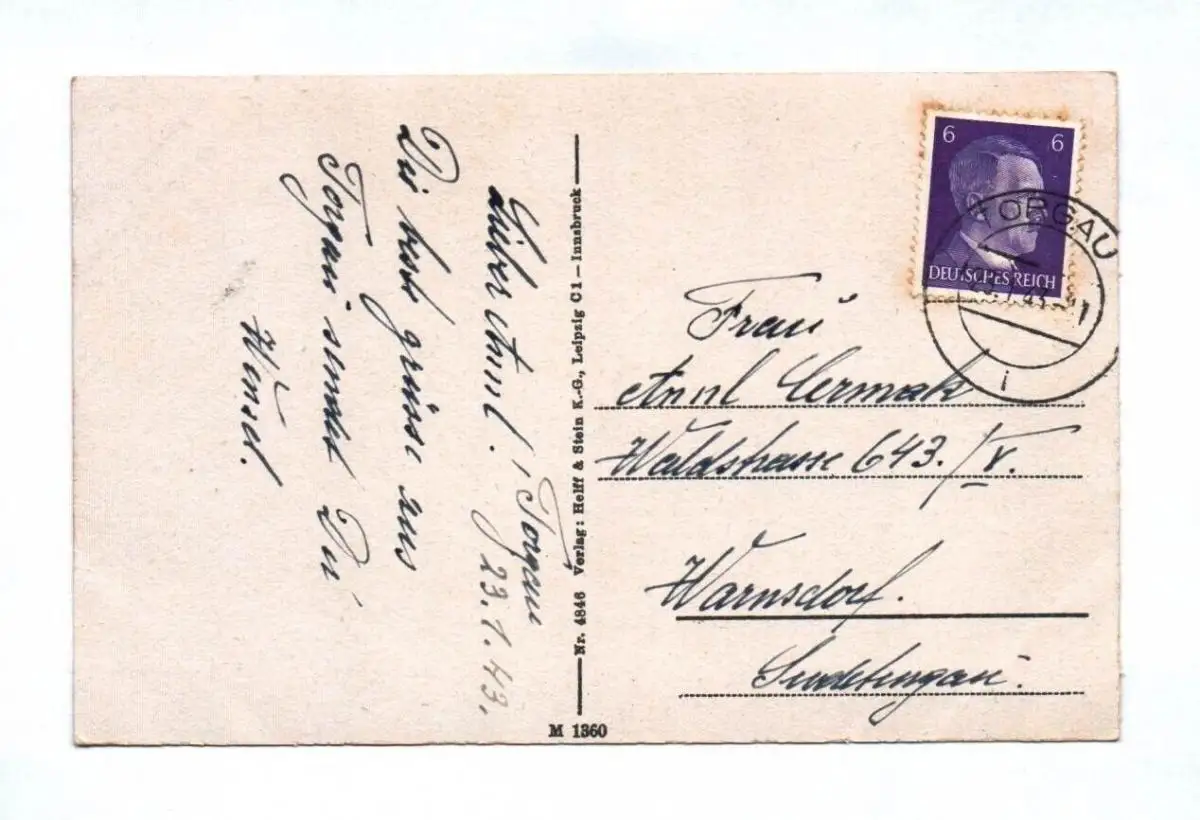 Torgau
23.1.43.
Liebe Annl!
Die beste grüsse aus
Torgau sendet Dir
Wenzel.
Nr. 4846 Verlag: Helff & Stein K.-G., Leipzig C1 — Innsbruck
M 1360
6 6
DEUTSCHES REICH
TORGAU
1
i
Frau
Annl Cermak
Waldstrasse 643./V.
Warnsdorf.
Sudetengau.